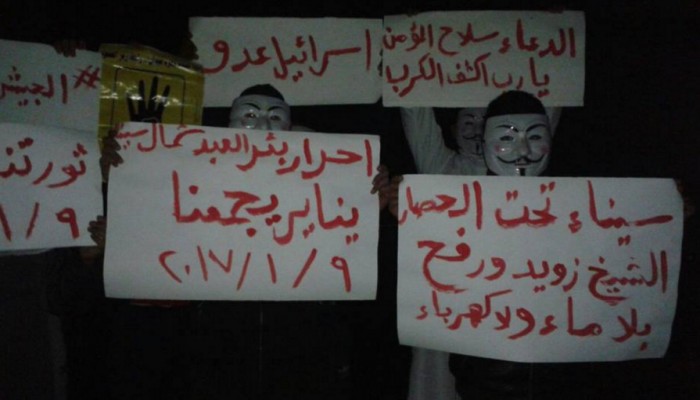 الدعاء سلاح المؤمن
يارب اكشف الكرب
اسرائيل عدو
# الجيش
احرار بئر العبد شمال سينا
يناير يجمعنا
٢٠١٧/١/٩
سيناء تحت الحصار
الشيخ زويد ورفح
بلا ماء ولا كهرباء
١/٩